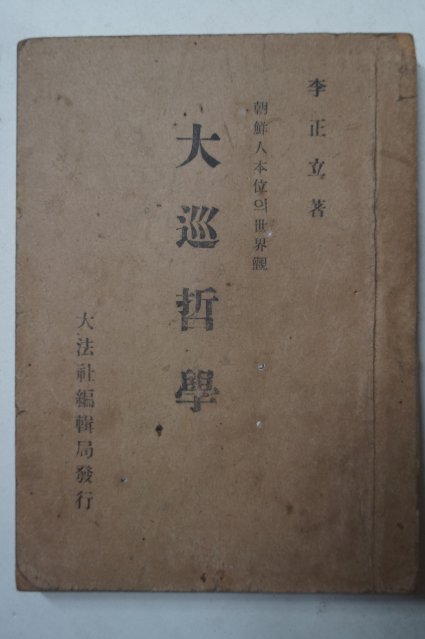 李正立著
朝鮮人本位의世界觀
大巡哲學
大法社編輯局發行